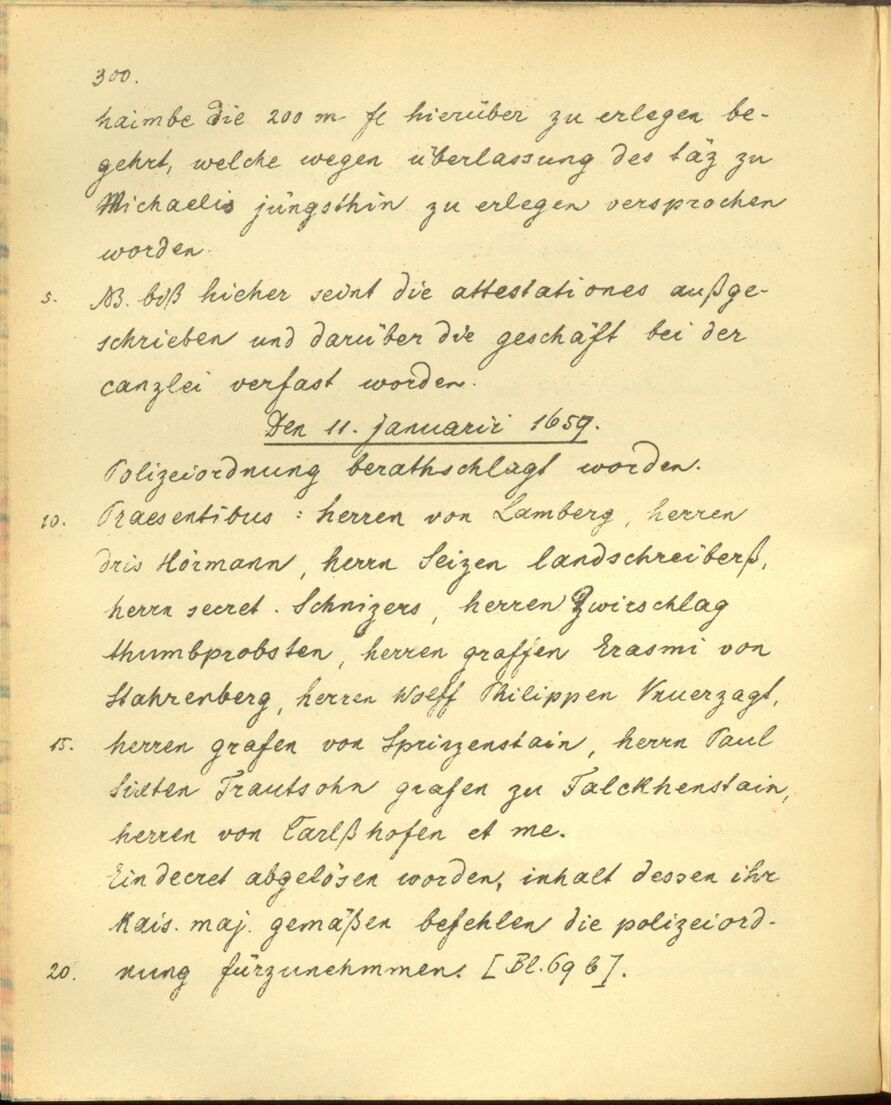 300.
haimbe die 200 m fl hierüber zu erlegen be-
gehrt, welche wegen überlassung des täz zu
Michaelis jüngsthin zu erlegen versprochen
worden.
5. NB. biß hieher seint die attestationes außge-
schrieben und darüber die geschäft bei der
canzlei verfast worden.
Den 11. januarii 1659.
Polizeiordnung berathschlagt worden.
10. Praesentibus: herren von Lamberg, herren
dris Hörmann, herrn Seizen landschreiberß,
herrn secret. Schnizers, herren Zwirschlag
thumbprobsten, herren graffen Erasmi von
Stahrenberg, herren Wolff Philippen Vnuerzagt,
15. herren grafen von Sprinzenstain, herrn Paul
Sixten Trautsohn grafen zu Falckhenstain,
herren von Carlßhofen et me.
Ein decret abgelösen worden, inhalt dessen ihr
Kais. maj. gemäßen befehlen die polizeiord-
20. nung fürzunehmmen. [Bl. 69 b].